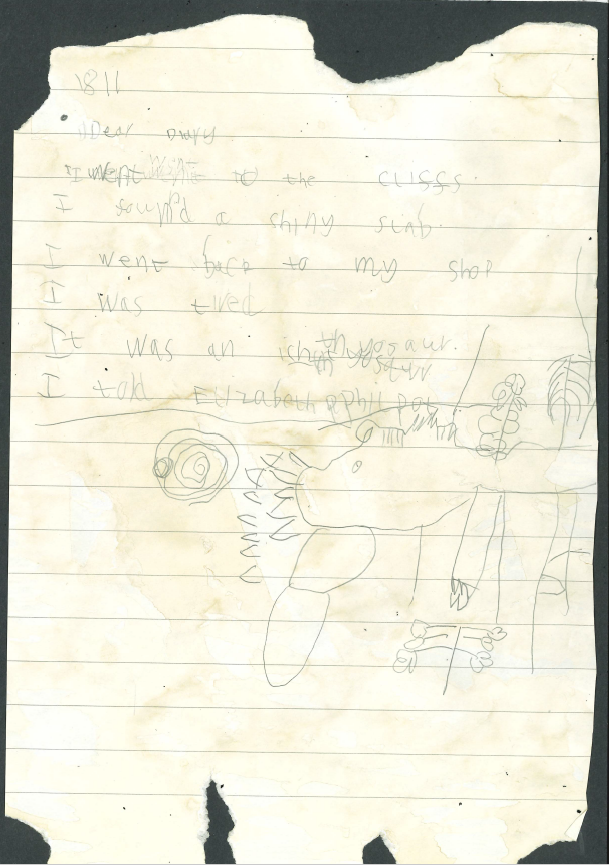 1811
Dear Diary
I went to the cliffs.
I found a shiny slab.
I went back to my shop
I was tired
It was an ichthyosaur.
I told Elizabeth philpot